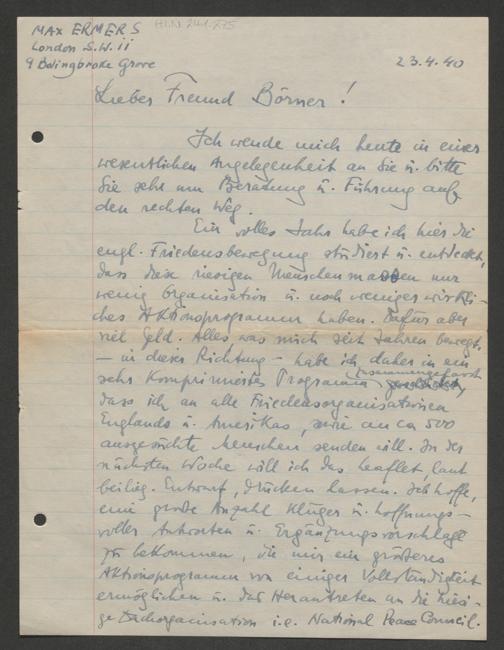 MAX ERMERS
H.I.N. 241.275
London S.W. 11
9 Bolingbroke Grove
23.4.40
Lieber Freund Börner!
Ich wende mich heute in einer
wesentlichen Angelegenheit an Sie u. bitte
Sie sehr um Beratung u. Führung auf
den rechten Weg.
Ein volles Jahr habe ich hier die
engl. Friedensbewegung studiert u. entdeckt,
dass diese riesigen Menschenmassen nur
wenig Organisation u. noch weniger wirkli-
ches Aktionsprogramm haben. Dafür aber
viel Geld. Alles was mich seit Jahren bewegt
– in dieser Richtung – habe ich daher in ein
sehr komprimiertes Programm zusammengefasst,
dass ich an alle Friedensorganisationen
Englands u. Amerikas, sowie an ca 500
ausgesuchte Menschen senden will. In der
nächsten Woche will ich das Leaflet, laut
beilieg. Entwurf, drucken lassen. Ich hoffe,
eine große Anzahl kluger u. hoffnungs-
voller Antworten u. Ergänzungsvorschläge
zu bekommen, die mir ein größeres
Aktionsprogramm von einiger Vollständigkeit
ermöglichen u. das Herantreten an die hiesi-
ge Dachorganisation i.e. National Peace Council.